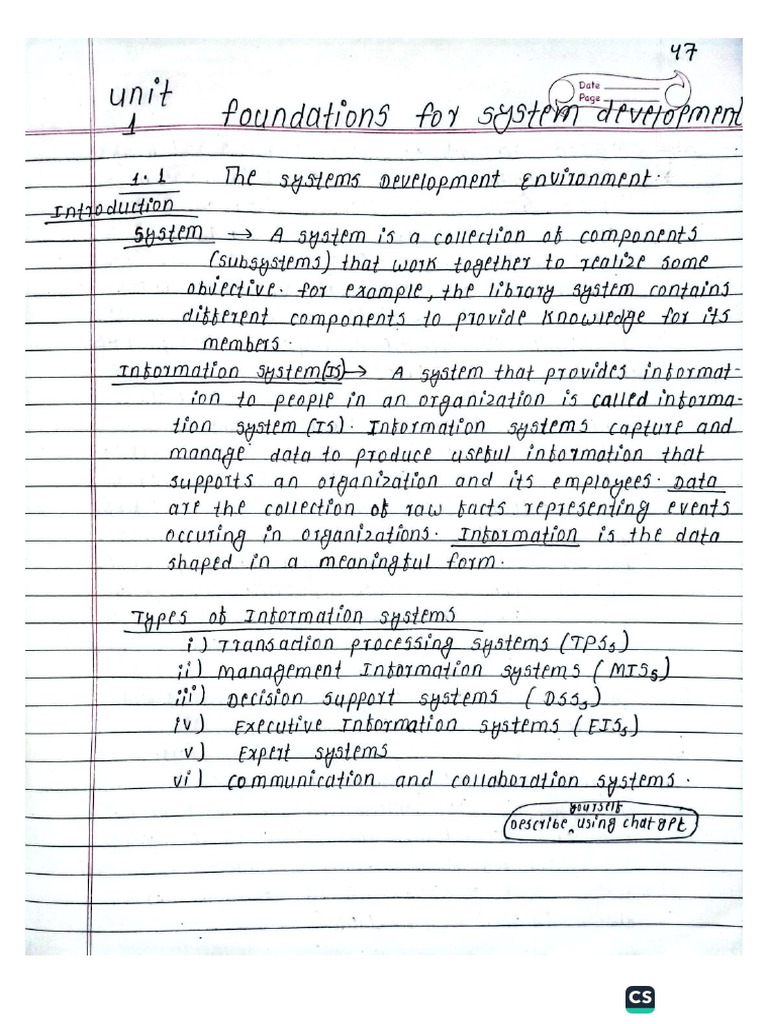 47
Date
Page
unit
1
foundations for system development
1.1 The systems Development Environment.
Introduction
System → A system is a collection of components
(subsystems) that work together to realize some
objective. for example, the library system contains
different components to provide knowledge for its
members.
Information system(IS) → A system that provides informat-
ion to people in an organization is called informa-
tion system (IS). Information systems capture and
manage data to produce useful information that
supports an organization and its employees. Data
are the collection of raw facts representing events
occuring in organizations. Information is the data
shaped in a meaningful form.
Types of Information systems
i) Transaction processing systems (TPSs)
ii) Management Information systems (MISs)
iii) Decision support systems (DSSs)
iv) Executive Information systems (EISs)
v) Expert systems
vi) communication and collaboration systems.
yourself
Describe ^ using chatgpt
CS